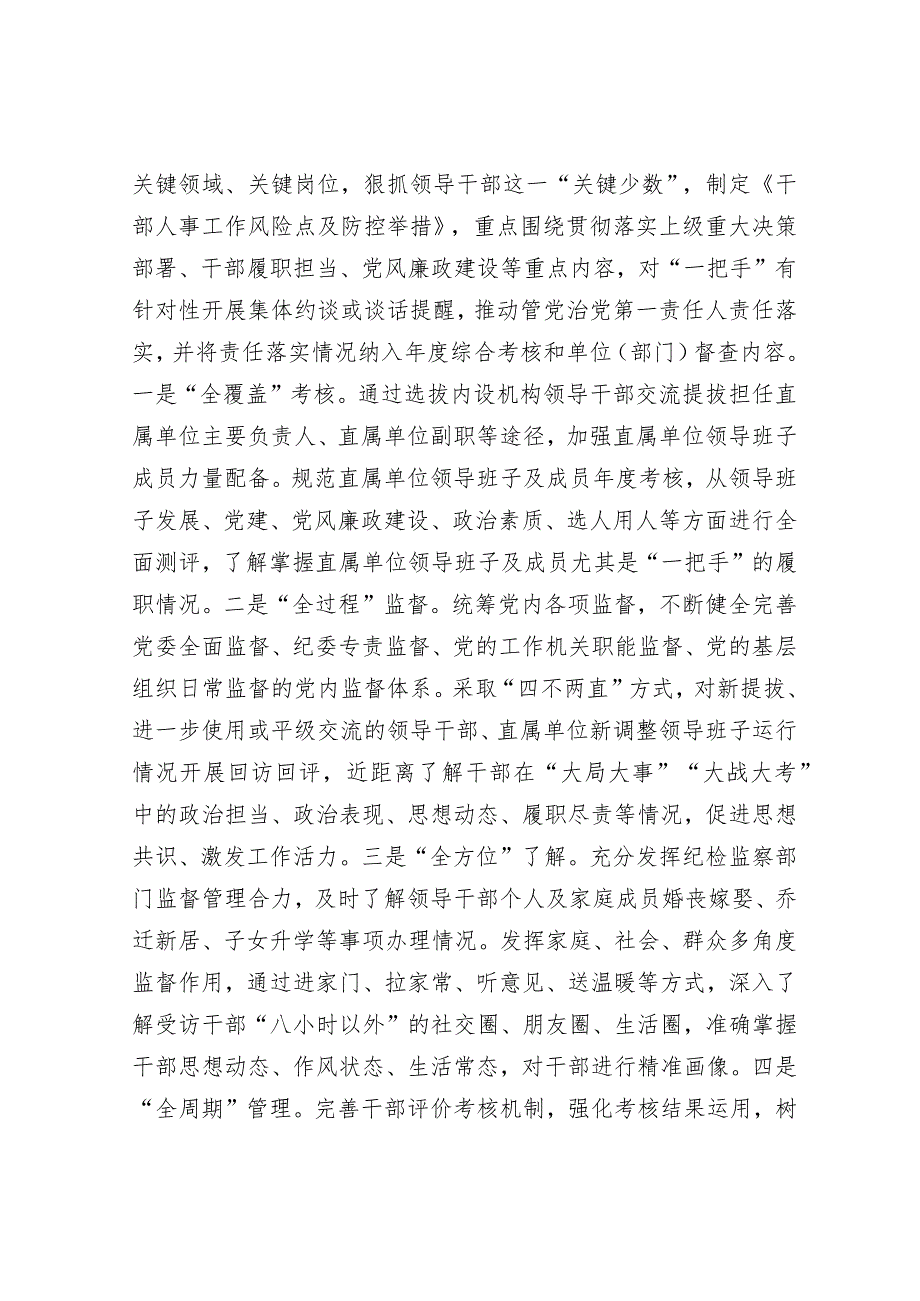 关键领域、关键岗位，狠抓领导干部这一“关键少数”，制定《干
部人事工作风险点及防控举措》，重点围绕贯彻落实上级重大决策
部署、干部履职担当、党风廉政建设等重点内容，对“一把手”有
针对性开展集体约谈或谈话提醒，推动管党治党第一责任人责任落
实，并将责任落实情况纳入年度综合考核和单位（部门）督查内容。
一是“全覆盖”考核。通过选拔内设机构领导干部交流提拔担任直
属单位主要负责人、直属单位副职等途径，加强直属单位领导班子
成员力量配备。规范直属单位领导班子及成员年度考核，从领导班
子发展、党建、党风廉政建设、政治素质、选人用人等方面进行全
面测评，了解掌握直属单位领导班子及成员尤其是“一把手”的履
职情况。二是“全过程”监督。统筹党内各项监督，不断健全完善
党委全面监督、纪委专责监督、党的工作机关职能监督、党的基层
组织日常监督的党内监督体系。采取“四不两直”方式，对新提拔、
进一步使用或平级交流的领导干部、直属单位新调整领导班子运行
情况开展回访回评，近距离了解干部在“大局大事”“大战大考”
中的政治担当、政治表现、思想动态、履职尽责等情况，促进思想
共识、激发工作活力。三是“全方位”了解。充分发挥纪检监察部
门监督管理合力，及时了解领导干部个人及家庭成员婚丧嫁娶、乔
迁新居、子女升学等事项办理情况。发挥家庭、社会、群众多角度
监督作用，通过进家门、拉家常、听意见、送温暖等方式，深入了
解受访干部“八小时以外”的社交圈、朋友圈、生活圈，准确掌握
干部思想动态、作风状态、生活常态，对干部进行精准画像。四是
“全周期”管理。完善干部评价考核机制，强化考核结果运用，树